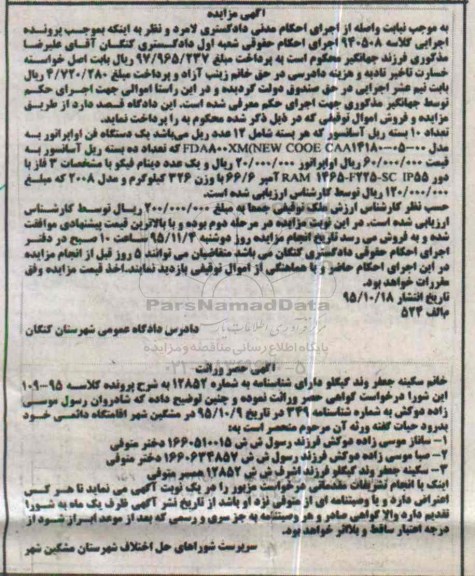 آگهی مزایده
به موجب نیابت واصله از اجرای احکام مدنی دادگستری لامرد و نظر به اینکه بموجب پرونده
اجرایی کلاسه ۹۴۰۵۰۸ اجرای احکام حقوقی شعبه اول دادگستری کنگان آقای علیرضا
مذکوری فرزند جهانگیر محکوم است به پرداخت مبلغ ۹۷/۹۶۵/۲۳۷ ریال بابت اصل خواسته
خسارت تاخیر تادیه و هزینه دادرسی در حق خانم زینب آزاد و پرداخت مبلغ ۴/۷۲۰/۲۸۰ ریال
بابت نیم عشر اجرایی در حق صندوق دولت گردیده و در این راستا اموالی جهت اجرای حکم
توسط جهانگیر مذکوری جهت اجرای حکم معرفی شده است. این دادگاه قصد دارد از طریق
مزایده و فروش اموال توقیفی که در ذیل ذکر شده محکوم به را پرداخت نماید.
تعداد ۱۰ بسته ریل آسانسور که هر بسته شامل ۱۲ عدد ریل می‌باشد یک دستگاه فن اواپراتور به
مدل FDA۸۰۰XM(NEW COOE CAA۱۴۱۸۰-۰۵-۰۰ که تعداد ده بسته ریل آسانسور به
قیمت ۶۰/۰۰۰/۰۰۰ ریال اواپراتور ۲۰/۰۰۰/۰۰۰ ریال و یک عدد دینام فیکو با مشخصات ۳ فاز با
دور RAM ۱۴۶۵-F۲۲۵-SC IP۵۵ آمپر ۶۶/۶ با وزن ۳۲۶ کیلوگرم و مدل ۲۰۰۸ که مبلغ
۱۲۰/۰۰۰/۰۰۰ ریال توسط کارشناس ارزیابی شده است.
حسب نظر کارشناس ارزش ملک توقیفی جمعا به مبلغ ۲۰۰/۰۰۰/۰۰۰ ریال توسط کارشناس
ارزیابی شده است. در این نوبت مزایده در مرحله دوم بوده و با بالاترین قیمت پیشنهادی موافقت
شده و به فروش می رسد تاریخ انجام مزایده روز دوشنبه ۹۵/۱۱/۴ ساعت ۱۰ صبح در دفتر
اجرای احکام حقوقی دادگستری کنگان می باشد متقاضیان می توانند ۵ روز قبل از انجام مزایده
در این اجرای احکام حاضر و با هماهنگی از اموال توقیفی بازدید نمایند.اخذ قیمت مزایده وفق
مقررات خواهد بود.
تاریخ انتشار ۹۵/۱۰/۱۸
م‌الف ۵۲۴
دادرس دادگاه عمومی شهرستان کنگان
ParsNamadData
پایگاه اطلاع رسانی مناقصه و مزایده
آگهی حصر وراثت
خانم سکینه جعفر وند گیگلو دارای شناسنامه به شماره ۱۲۸۵۲ به شرح پرونده کلاسه ۹۵-۱۰۹
این شورا درخواست گواهی حصر وراثت نموده و چنین توضیح داده که شادروان رسول موسی
زاده دوکش به شماره شناسنامه ۳۳۹ در تاریخ ۹۵/۱۰/۹ در مشگین شهر اقامتگاه دائمی خود
بدرود حیات گفته ورثه آن مرحوم منحصر است به:
۱- ساناز موسی زاده موکش فرزند رسول ش ش ۱۶۶۰۵۱۰۰۱۵ دختر متوفی
۲- صبا موسی زاده موکش فرزند رسول ش ش ۱۶۶۰۶۳۴۸۵۷ دختر متوفی
۳- سکینه جعفر وند گیگلو فرزند اشرف ش ش ۱۲۸۵۲ همسر متوفی
اینک با انجام تشریفات مقدماتی درخواست مزبور را در یک نوبت آگهی می نماید تا هر کسی
اعتراضی دارد و یا وصیتنامه ای از متوفی نزد او باشد از تاریخ نشر آگهی ظرف یک ماه به شورا
تقدیم دارد والا گواهی صادر و هر وصیتنامه به جز سری و رسمی که بعد از موعد ابراز شود از
درجه اعتبار ساقط و بلااثر خواهد بود.
سرپرست شوراهای حل اختلاف شهرستان مشگین شهر